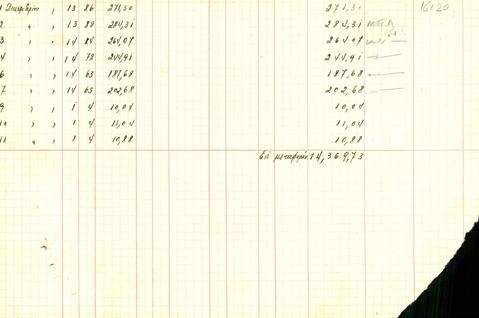 1 Δεκεμβρίου , 13 86 271,30 271,30 16120
2 " , 13 88 284,31 284,31
3 , , 14 24 264,07 264,07
4 , , 14 73 244,91 244,91
6 , , 14 63 187,68 187,68
7 , , 14 65 202,68 202,68
9 , , 1 4 10,04 10,04
10 , , 1 4 11,04 11,04
11 " , 1 4 10,88 10,88
Εις μεταφοράν 14,369,73